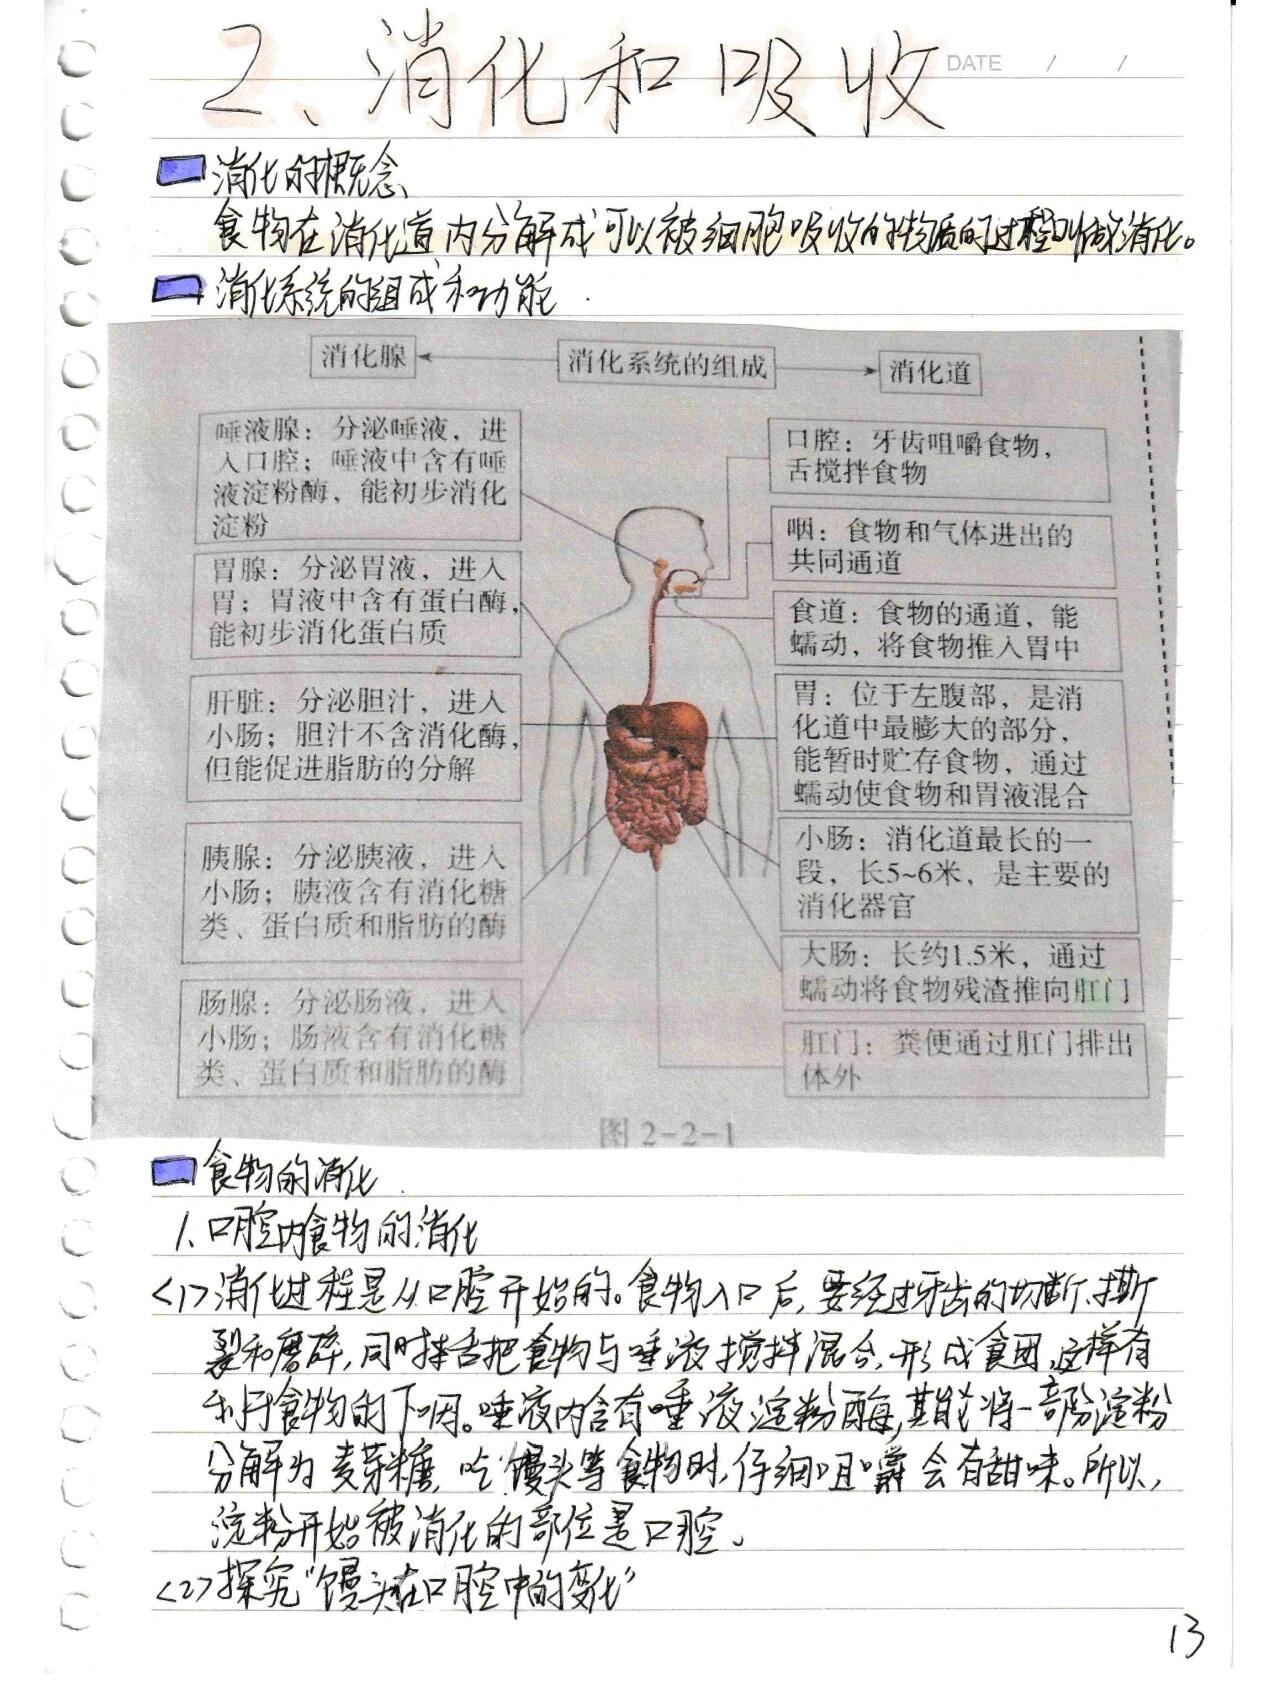 2、消化和吸收
DATE / /
消化的概念
食物在消化道内分解成可以被细胞吸收的物质的过程叫做消化。
消化系统的组成和功能
消化腺
消化系统的组成
消化道
唾液腺：分泌唾液，进
入口腔；唾液中含有唾
液淀粉酶，能初步消化
淀粉
胃腺：分泌胃液，进入
胃；胃液中含有蛋白酶，
能初步消化蛋白质
肝脏：分泌胆汁，进入
小肠；胆汁不含消化酶，
但能促进脂肪的分解
胰腺：分泌胰液，进入
小肠；胰液含有消化糖
类、蛋白质和脂肪的酶
肠腺：分泌肠液，进入
小肠；肠液含有消化糖
类、蛋白质和脂肪的酶
口腔：牙齿咀嚼食物，
舌搅拌食物
咽：食物和气体进出的
共同通道
食道：食物的通道，能
蠕动，将食物推入胃中
胃：位于左腹部，是消
化道中最膨大的部分，
能暂时贮存食物，通过
蠕动使食物和胃液混合
小肠：消化道最长的一
段，长5~6米，是主要的
消化器官
大肠：长约1.5米，通过
蠕动将食物残渣推向肛门
肛门：粪便通过肛门排出
体外
图2-2-1
食物的消化
1.口腔内食物的消化
<1>消化过程是从口腔开始的。食物入口后，要经过牙齿的切断、撕
裂和磨碎，同时舌把食物与唾液搅拌混合，形成食团，这样有
利于食物的下咽。唾液内含有唾液淀粉酶，其能将一部份淀粉
分解为麦芽糖，吃馒头等食物时，仔细咀嚼会有甜味。所以，
淀粉开始被消化的部位是口腔。
<2>探究"馒头在口腔中的变化"
13